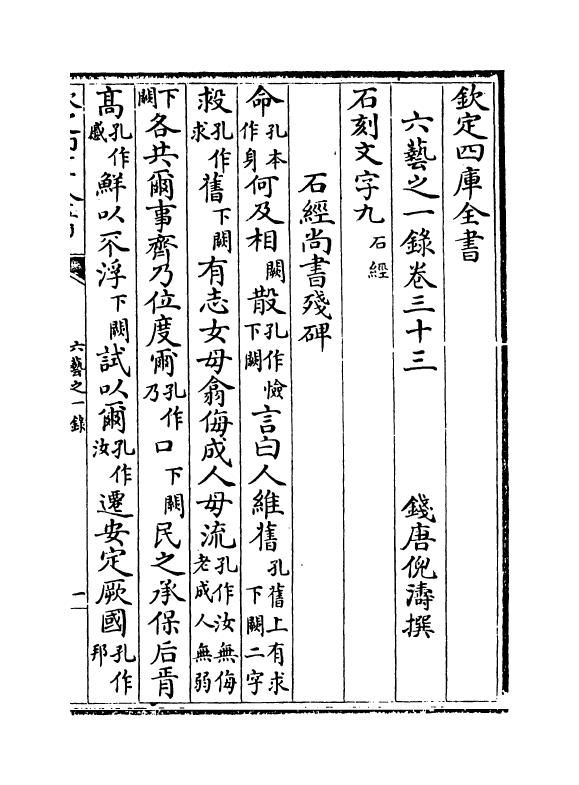 欽定四庫全書
六藝之一錄卷三十三
錢唐倪濤撰
石刻文字九石經
石經尚書殘碑
命孔本作身何及相闕散孔作憸下闕言曰人維舊孔舊上有求下闕二字
救孔作求舊下闕有志女毋翕侮成人毋流孔作汝無侮老成人無弱
下闕各共爾事齊乃位度爾孔作乃口下闕民之承保后胥
高孔作慼鮮以不浮下闕試以爾孔作汝遷安定厥國孔作邦
六藝之一錄
一